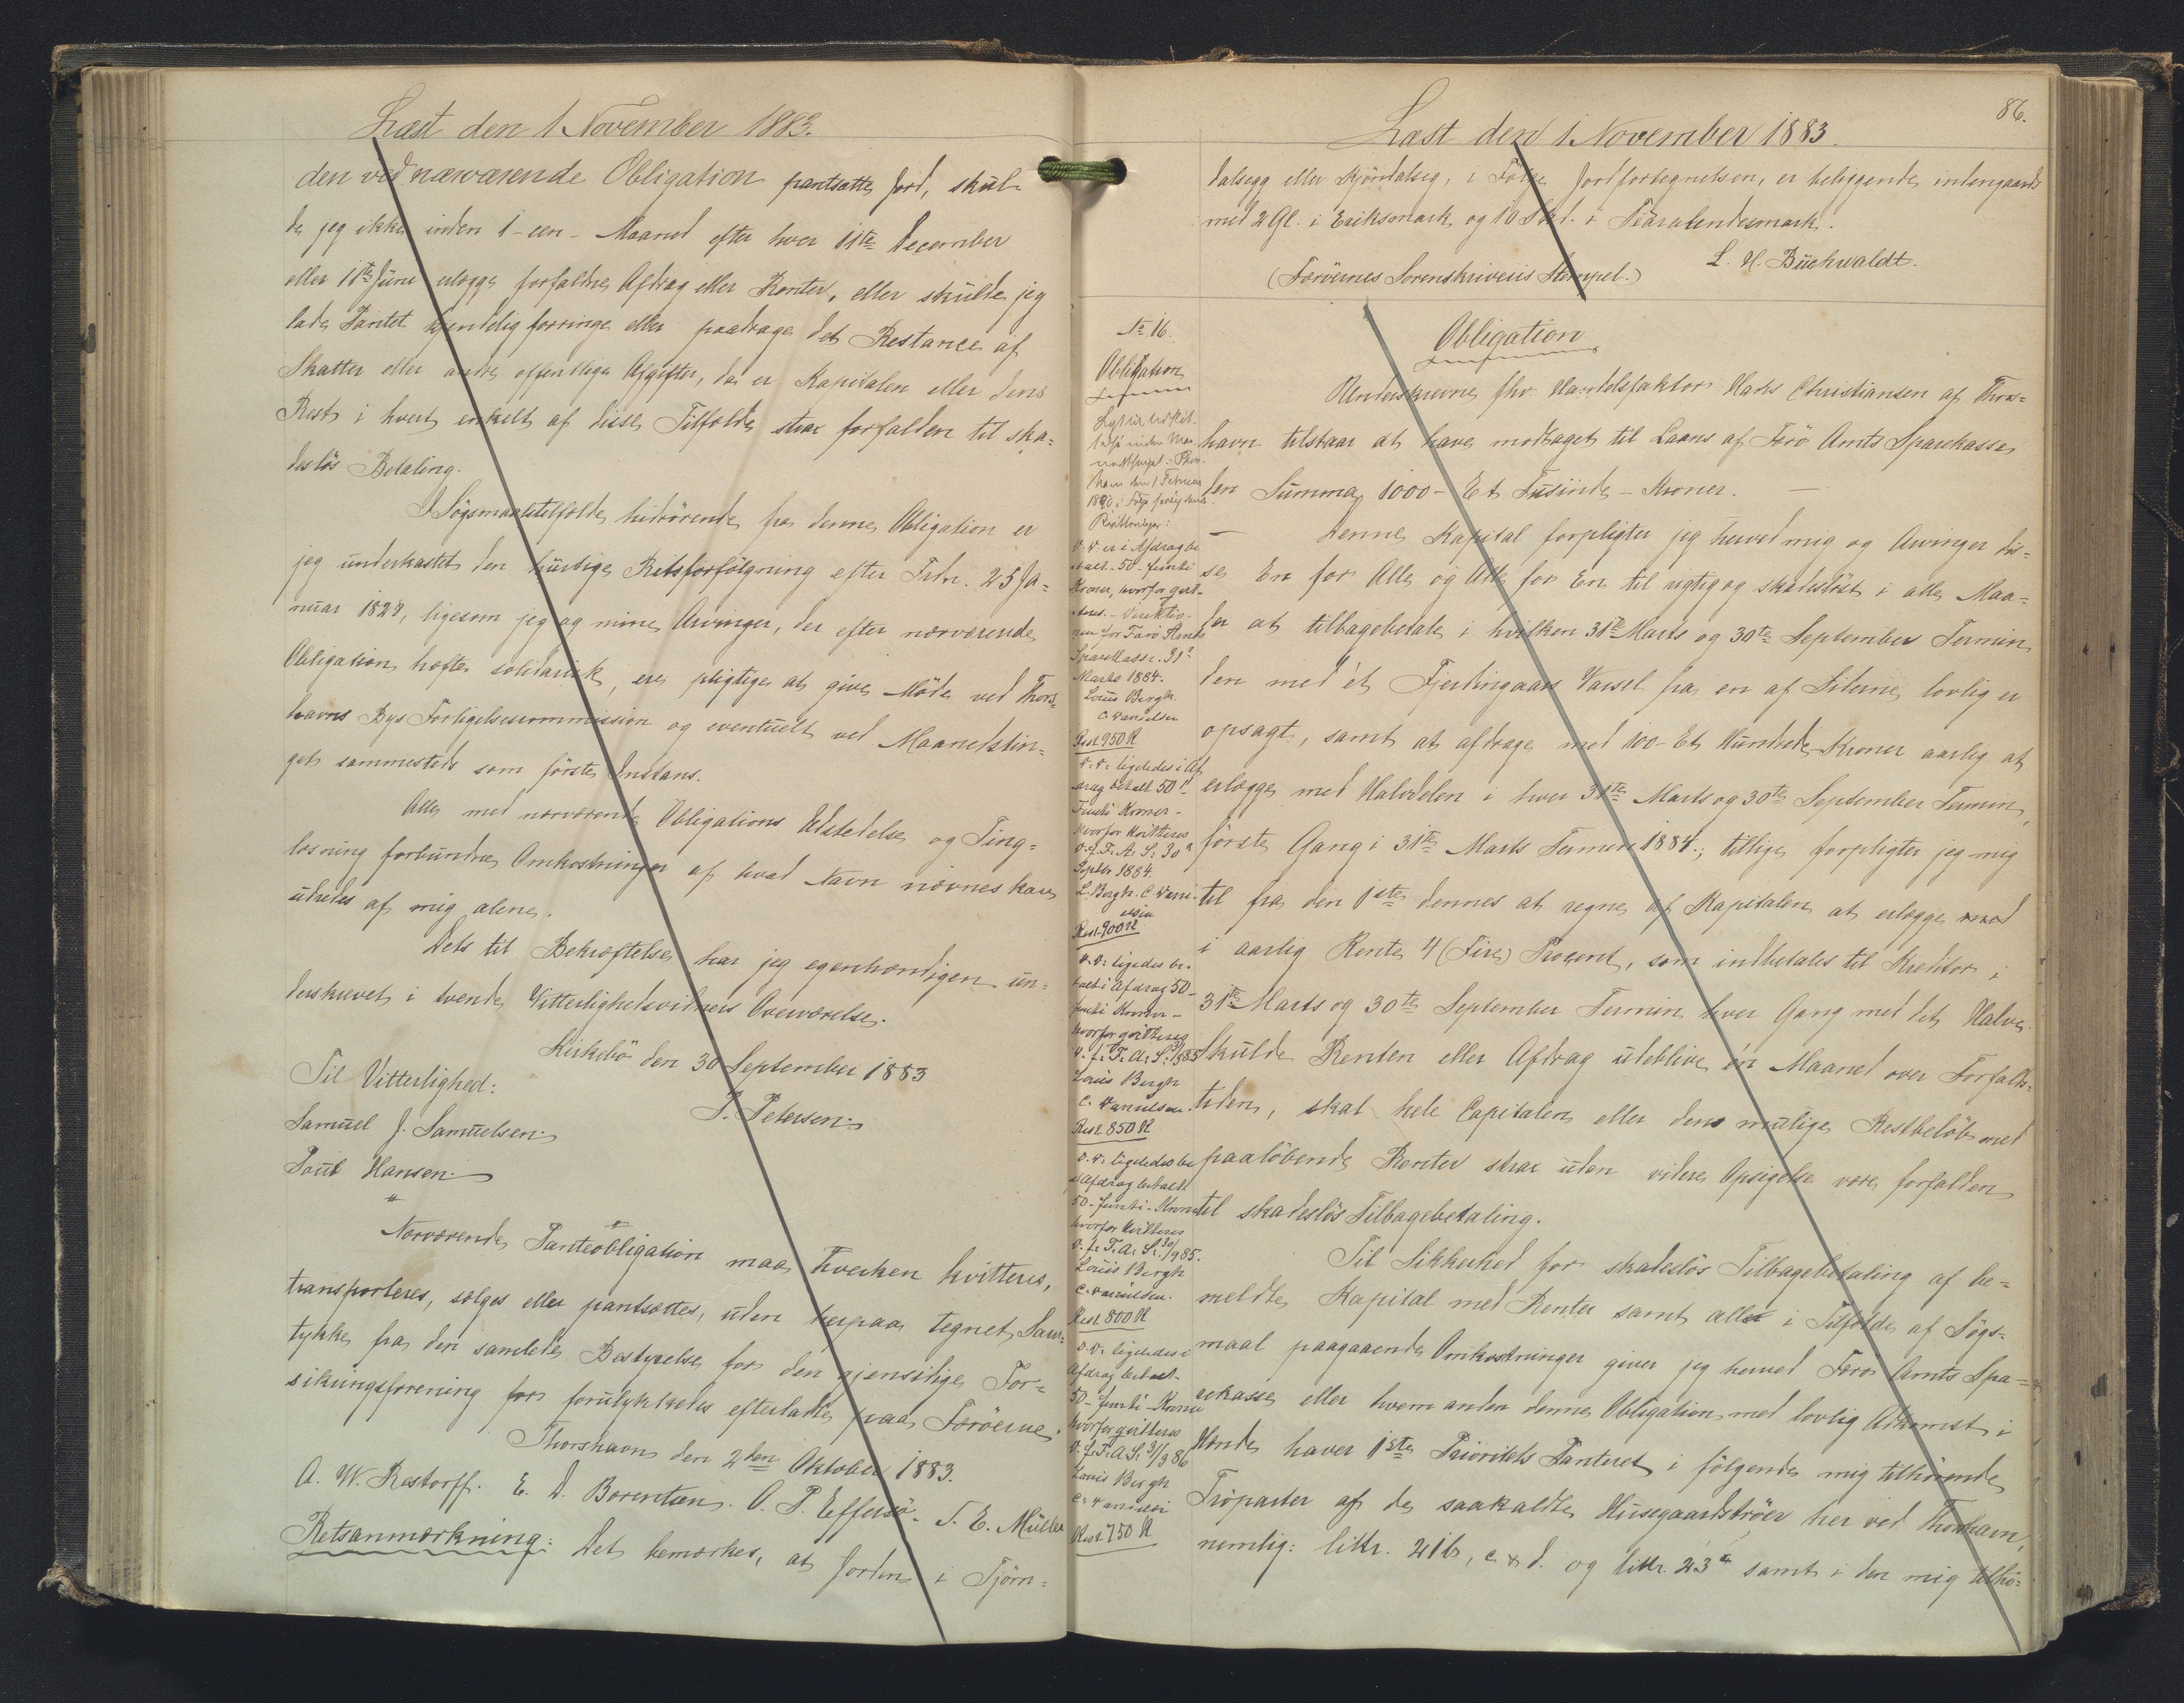 Læst den 1 November 1883.
den ved nærværende Obligation pantsatte Jord, skul-
de jeg ikke inden 1 - een - Maaned efter hver 11te December
eller 11te Juni erlægge forfaldne Afdrag eller Renter, eller skulde jeg
lade Pantet kjendelig forringe eller paadrage det Restance af
Skatter eller andre offentlige Afgifter, da er Kapitalen eller dens
Rest i hvert enkelt af disse Tilfælde strax forfalden til ska-
deslös Betaling.
I Sögsmaalstilfælde hidrörende fra denne Obligation er
jeg underkastet den hurtige Retsforfölgning efter Frdn. 25 Ja-
nuar 1828, ligesom jeg og mine Arvinger, der efter nærværende
Obligation hæfte solidarisk, ere pligtige at give Möde ved Thors-
havns Bys Forligelsescommission og eventuelt ved Maanedstin-
get sammesteds som förste Instans.
Alle med nærværende Obligations Udstedelse og Ting-
læsning forbundne Omkostninger af hvad Navn nævnes kan
udredes af mig alene.
Dets til Bekræftelse har jeg egenhændigen un-
derskrevet i tvende Vitterlighedsvidners Overværelse.
Kirkebö den 30 September 1883
P. Petersen.
Til Vitterlighed:
Samuel J. Samuelsen.
Poul Hansen.
Nærværende Panteobligation maa hverken kvitteres,
transporteres, sælges eller pantsættes, uden herpaa tegnet Sam-
tykke fra den samlede Bestyrelse for den gjensidige For-
sikringsforening for forulykkedes efterladte paa Færöerne.
Thorshavn den 2den Oktober 1883.
A. W. Restorff. E. D. Bærentsen. O. P. Effersö. S. E. Müller
Retsanmærkning: Det bemærkes, at Jorden i Tjörn-
86.
Læst den 1 November 1883.
dalsegg eller Kjörndalseg, i Fölge Jordfortegnelsen, er beliggende indengaards
med 2 Gl. i Eriksmark og 10 Skd. i
L. H. Buchwaldt.
(Færöernes Sorenskriveris Stempel.)
No 16.
Obligation
1890
Kvitteringer:
V. V. er i Afdrag be
talt - 50 - femti
Kroner, hvorfor qvit-
teres. - Direktio-
nen for Færö Amts
Sparekasse. 31te
Marts 1884.
Louis Bergh
C. Danielsen
Rest 950 K
V. V. ligeledes i Af
drag betalt 50
Femti Kroner -
hvorfor kvitteres
D. f. F. A. S. 30
Septbr 1884.
L. Bergh. C. Dani-
elsen
Rest 900 K
V. V. ligeledes be-
talt i Afdrag 50 -
femti Kroner -
hvorfor qvitteres
D. f. F. A. S. 31/3 85
Louis Bergh
C. Danielsen.
Rest. 850 K
V. V. ligeledes
i Afdrag betalt
50 - femti - Kroner
hvorfor kvitteres
D. f. F. A. S. 30/9 85.
Louis Bergh
C. Danielsen.
Rest. 800 K
V. V. ligeledes i
Afdrag betalt
50 - femti - Kroner
hvorfor qvitteres
D. f. F. A. S. 31/3 86
Louis Bergh
C. Danielsen
Rest. 750 K
Obligation
Underskrevne fhv. Handelsfaktor Hans Christiansen af Thors-
havn tilstaar at have modtaget til Laans af Færö Amts Sparekasse
den Summa 1000 - Et Tusinde - Kroner.
Denne Kapital forpligter jeg herved mig og Arvinger dis-
se En for Alle og Alle for En til rigtig og skadeslöst i alle Maa-
der at tilbagebetale i hvilken 31te Marts og 30te September Termin,
den med ét Fjerdingaars Varsel fra en af Siderne lovlig er
opsagt, samt at afdrage med 100 - Et Hundrede - Kroner aarlig at
erlægge med Halvdelen i hver 31te Marts og 30te September Termin,
förste Gang i 31te Marts Termin 1884; tillige forpligter jeg mig
til fra den 1ste dennes at regne af Kapitalen at erlægge med
i aarlig Rente 4 (Fire) Procent, som indbetales til Kreditor i
31te Marts og 30te September Termin hver Gang med det Halve.
Skulde Renten eller Afdrag udeblive én Maaned over Forfalds-
tiden, skal hele Capitalen eller dens mulige Restbelöb med
paalöbende Renter strax uden videre Opsigelse være forfalden
til skadeslös Tilbagebetaling.
Til Sikkerhed for skadeslös Tilbagebetaling af be-
meldte Kapital med Renter samt alle i Tilfælde af Sögs-
maal paagaaende Omkostninger giver jeg herved Færö Amts Spa-
rekasse eller hvem anden denne Obligation med lovlig Adkomst i
Hænde haver 1ste Prioritets Panteret i fölgende mig tilhörende
Tröparter af de saakaldte Husegaardströer her ved Thorshavn,
nemlig: littr. 21 b, c & d. og littr. 23 a samt i den mig tilhö-